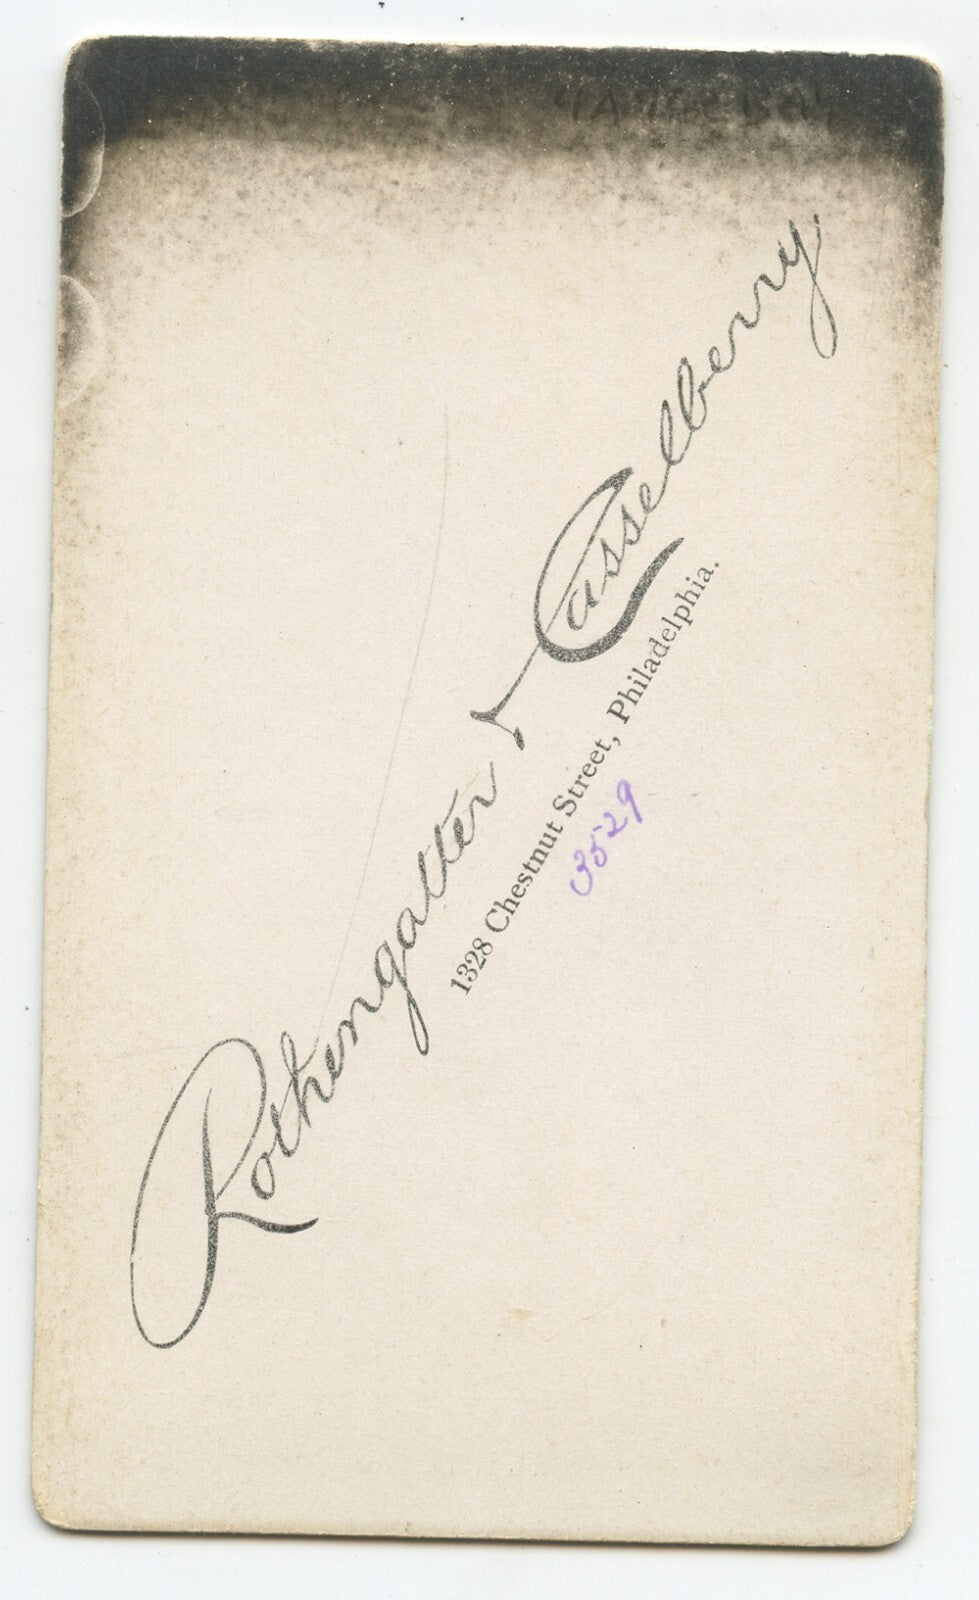 Rothengatter & Casselberry,
1328 Chestnut Street, Philadelphia.
3529